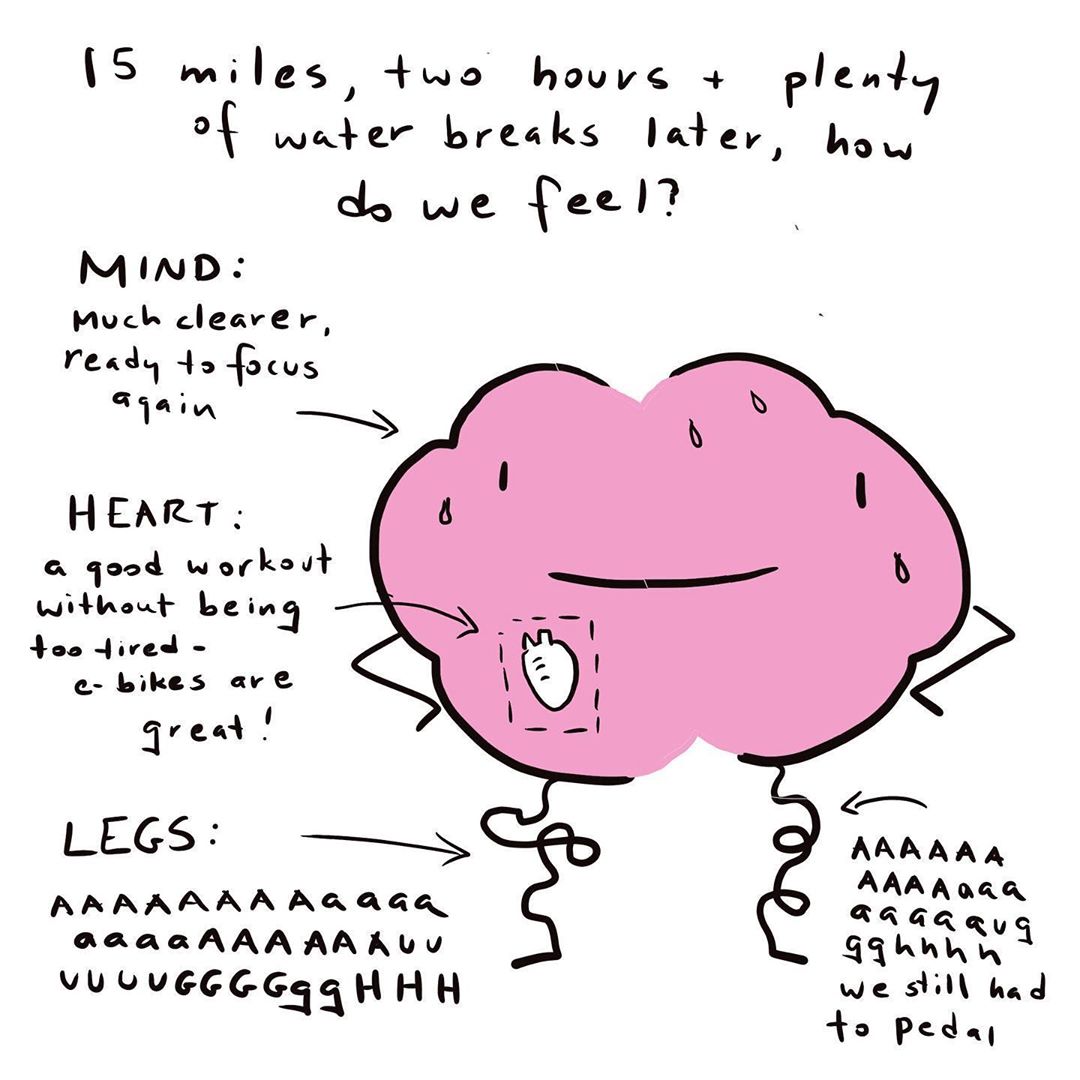 15 miles, two hours + plenty
of water breaks later, how
do we feel?
MIND:
Much clearer,
ready to focus
again
HEART:
a good workout
without being
too tired -
e-bikes are
great!
LEGS:
AAAAAAAAaaaa
aaaaAAAAAAuu
uuuuGGGGggHHH
AAAAAA
AAAAaaa
aaaaaug
gghhhh
we still had
to pedal